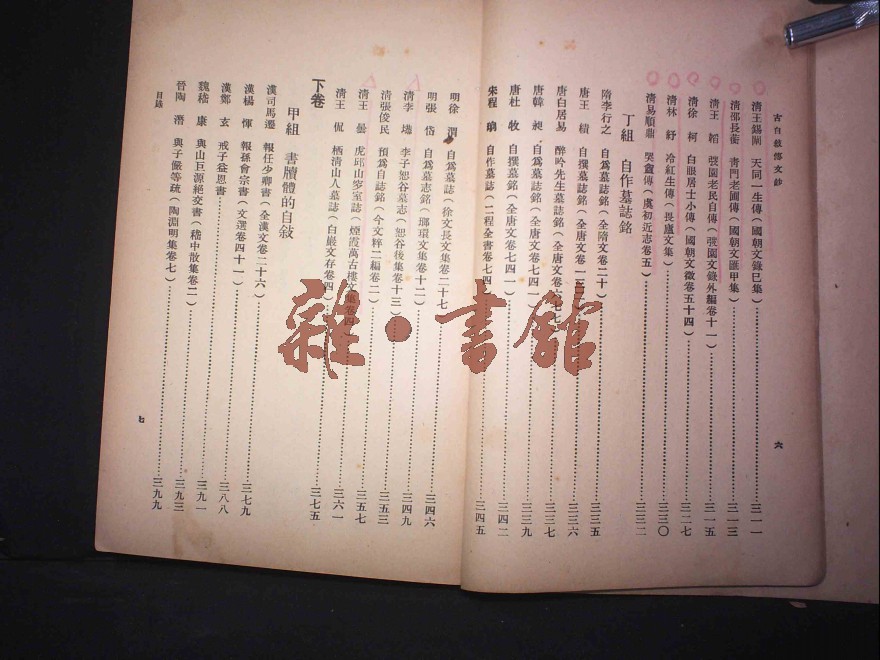 古自敍傳文鈔
清王錫闡 天同一生傳（國朝文錄巳集）……三一一
清邵長蘅 靑門老圃傳（國朝文匯甲集）……三一三
清王 韜 弢園老民自傳（弢園文錄外編卷十一）……三一五
清徐 柯 白眼居士小傳（國朝文徵卷五十四）……三二七
清林 紓 冷紅生傳（畏廬文集）……三三〇
清易順鼎 哭盦傳（虞初近志卷五）……三三二
丁組 自作墓誌銘
隋李行之 自爲墓誌銘（全隋文卷二十）……三三五
唐王 績 自撰墓誌銘（全唐文卷一三二）……三三六
唐白居易 醉吟先生墓誌銘（全唐文卷六七七）……三三七
唐韓 昶 自爲墓誌銘（全唐文卷七四一）……三三九
唐杜 牧 自撰墓誌銘（全唐文卷七四）……三四二
宋程 珦 自作墓誌（二程全書卷七四）……三四五
六
明徐 渭 自爲墓誌（徐文長文集卷二十七）
明張 岱 自爲墓誌銘（瑯環文集卷十二）……三四六
清李 塨 李子恕谷墓志（恕谷後集卷十三）……三四九
清張俊民 預爲自誌銘（今文粹二編卷二）……三五三
清王 曇 虎邱山穸室誌（煙霞萬古樓文集卷四）……三五七
清王 侃 栖清山人墓誌（白巖文存卷四）……三六一
下卷……三七五
甲組 書牘體的自敍
漢司馬遷 報任少卿書（全漢文卷二十六）
漢楊 惲 報孫會宗書（文選卷四十一）……三七九
漢鄭 玄 戒子益恩書……三八八
魏嵇 康 與山巨源絕交書（嵇中散集卷二）……三九一
晉陶 潛 與子儼等疏（陶淵明集卷七）……三九三
……三九九
目錄
七
雜·書館